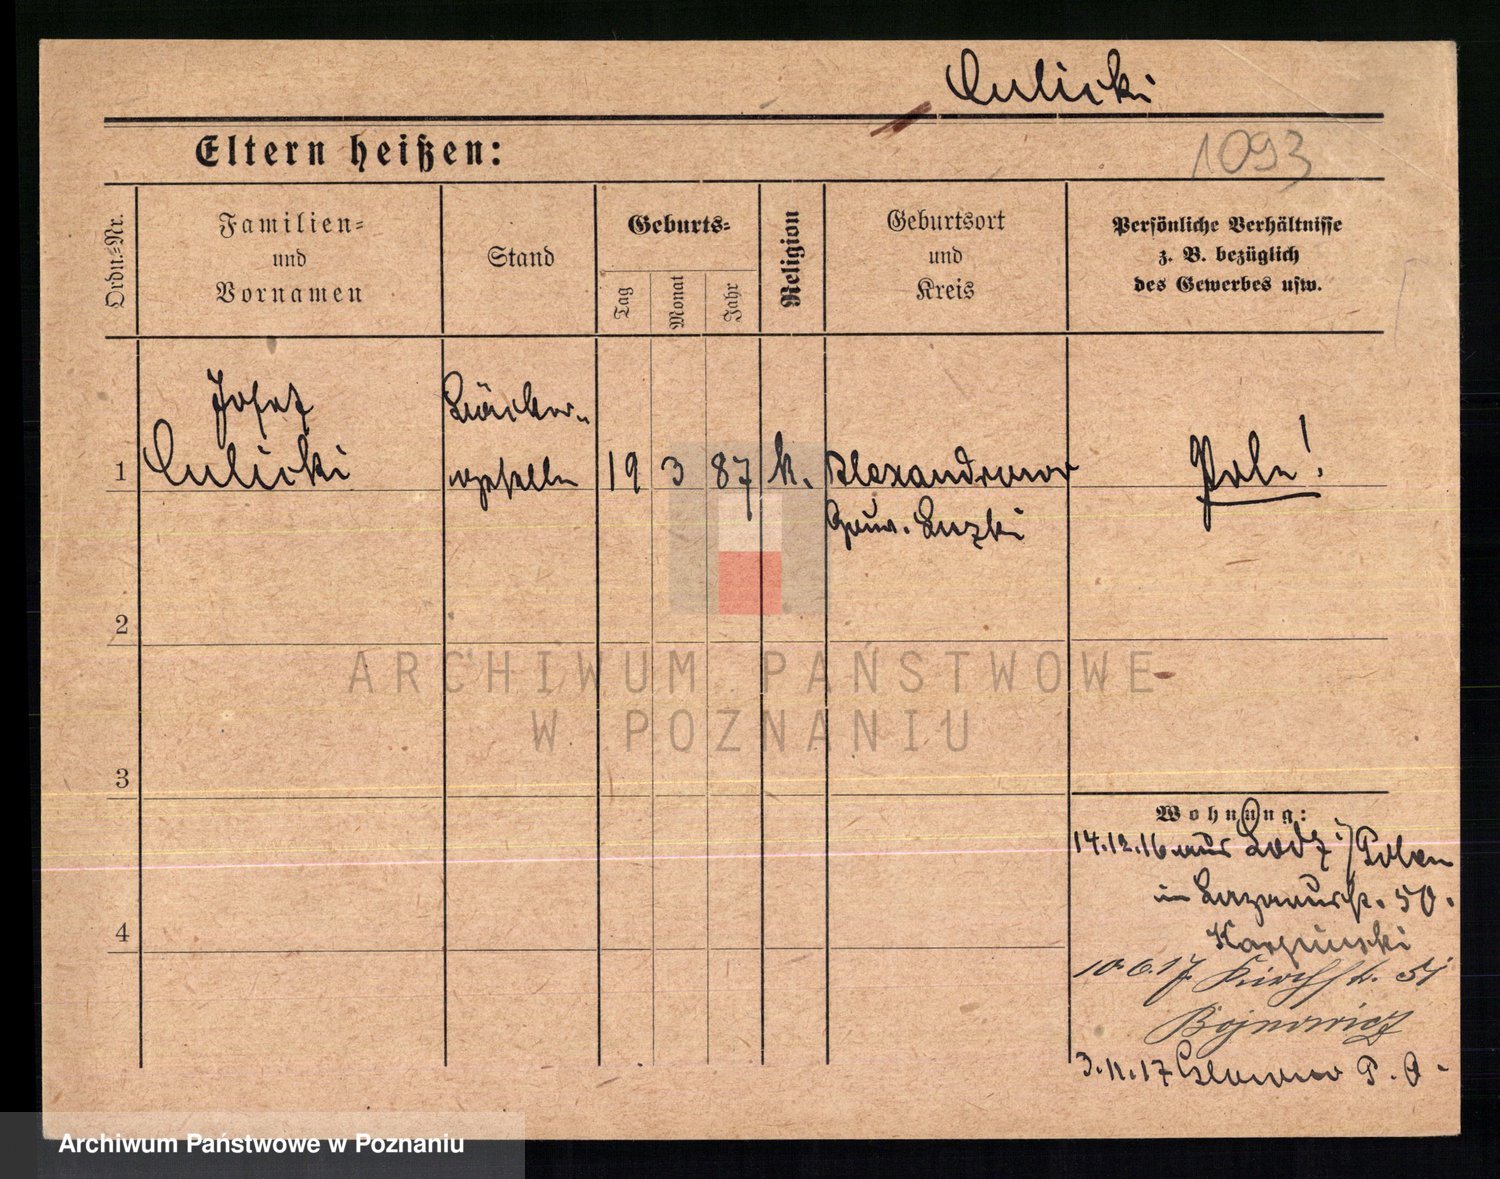 Culicki
1093
Eltern heißen:
Ordn.=Nr.
Familien=
und
Vornamen
Stand
Geburts=
Tag
Monat
Jahr
Religion
Geburtsort
und
Kreis
Persönliche Verhältnisse
z. B. bezüglich
des Gewerbes usw.
Josef
Culicki
Bäcker-
geselle
1
19 3 87 k.
Alexandrowo
Gouv.
Pole!
2
3
4
Wohnung:
14.12.16 aus Lodz i/Polen
in Lazarusstr. 50.
Karpinski
10.6.17 Kirchstr. 51
Bojnowicz
3.11.17 P. O.
ARCHIWUM PAŃSTWOWE
W POZNANIU
Archiwum Państwowe w Poznaniu